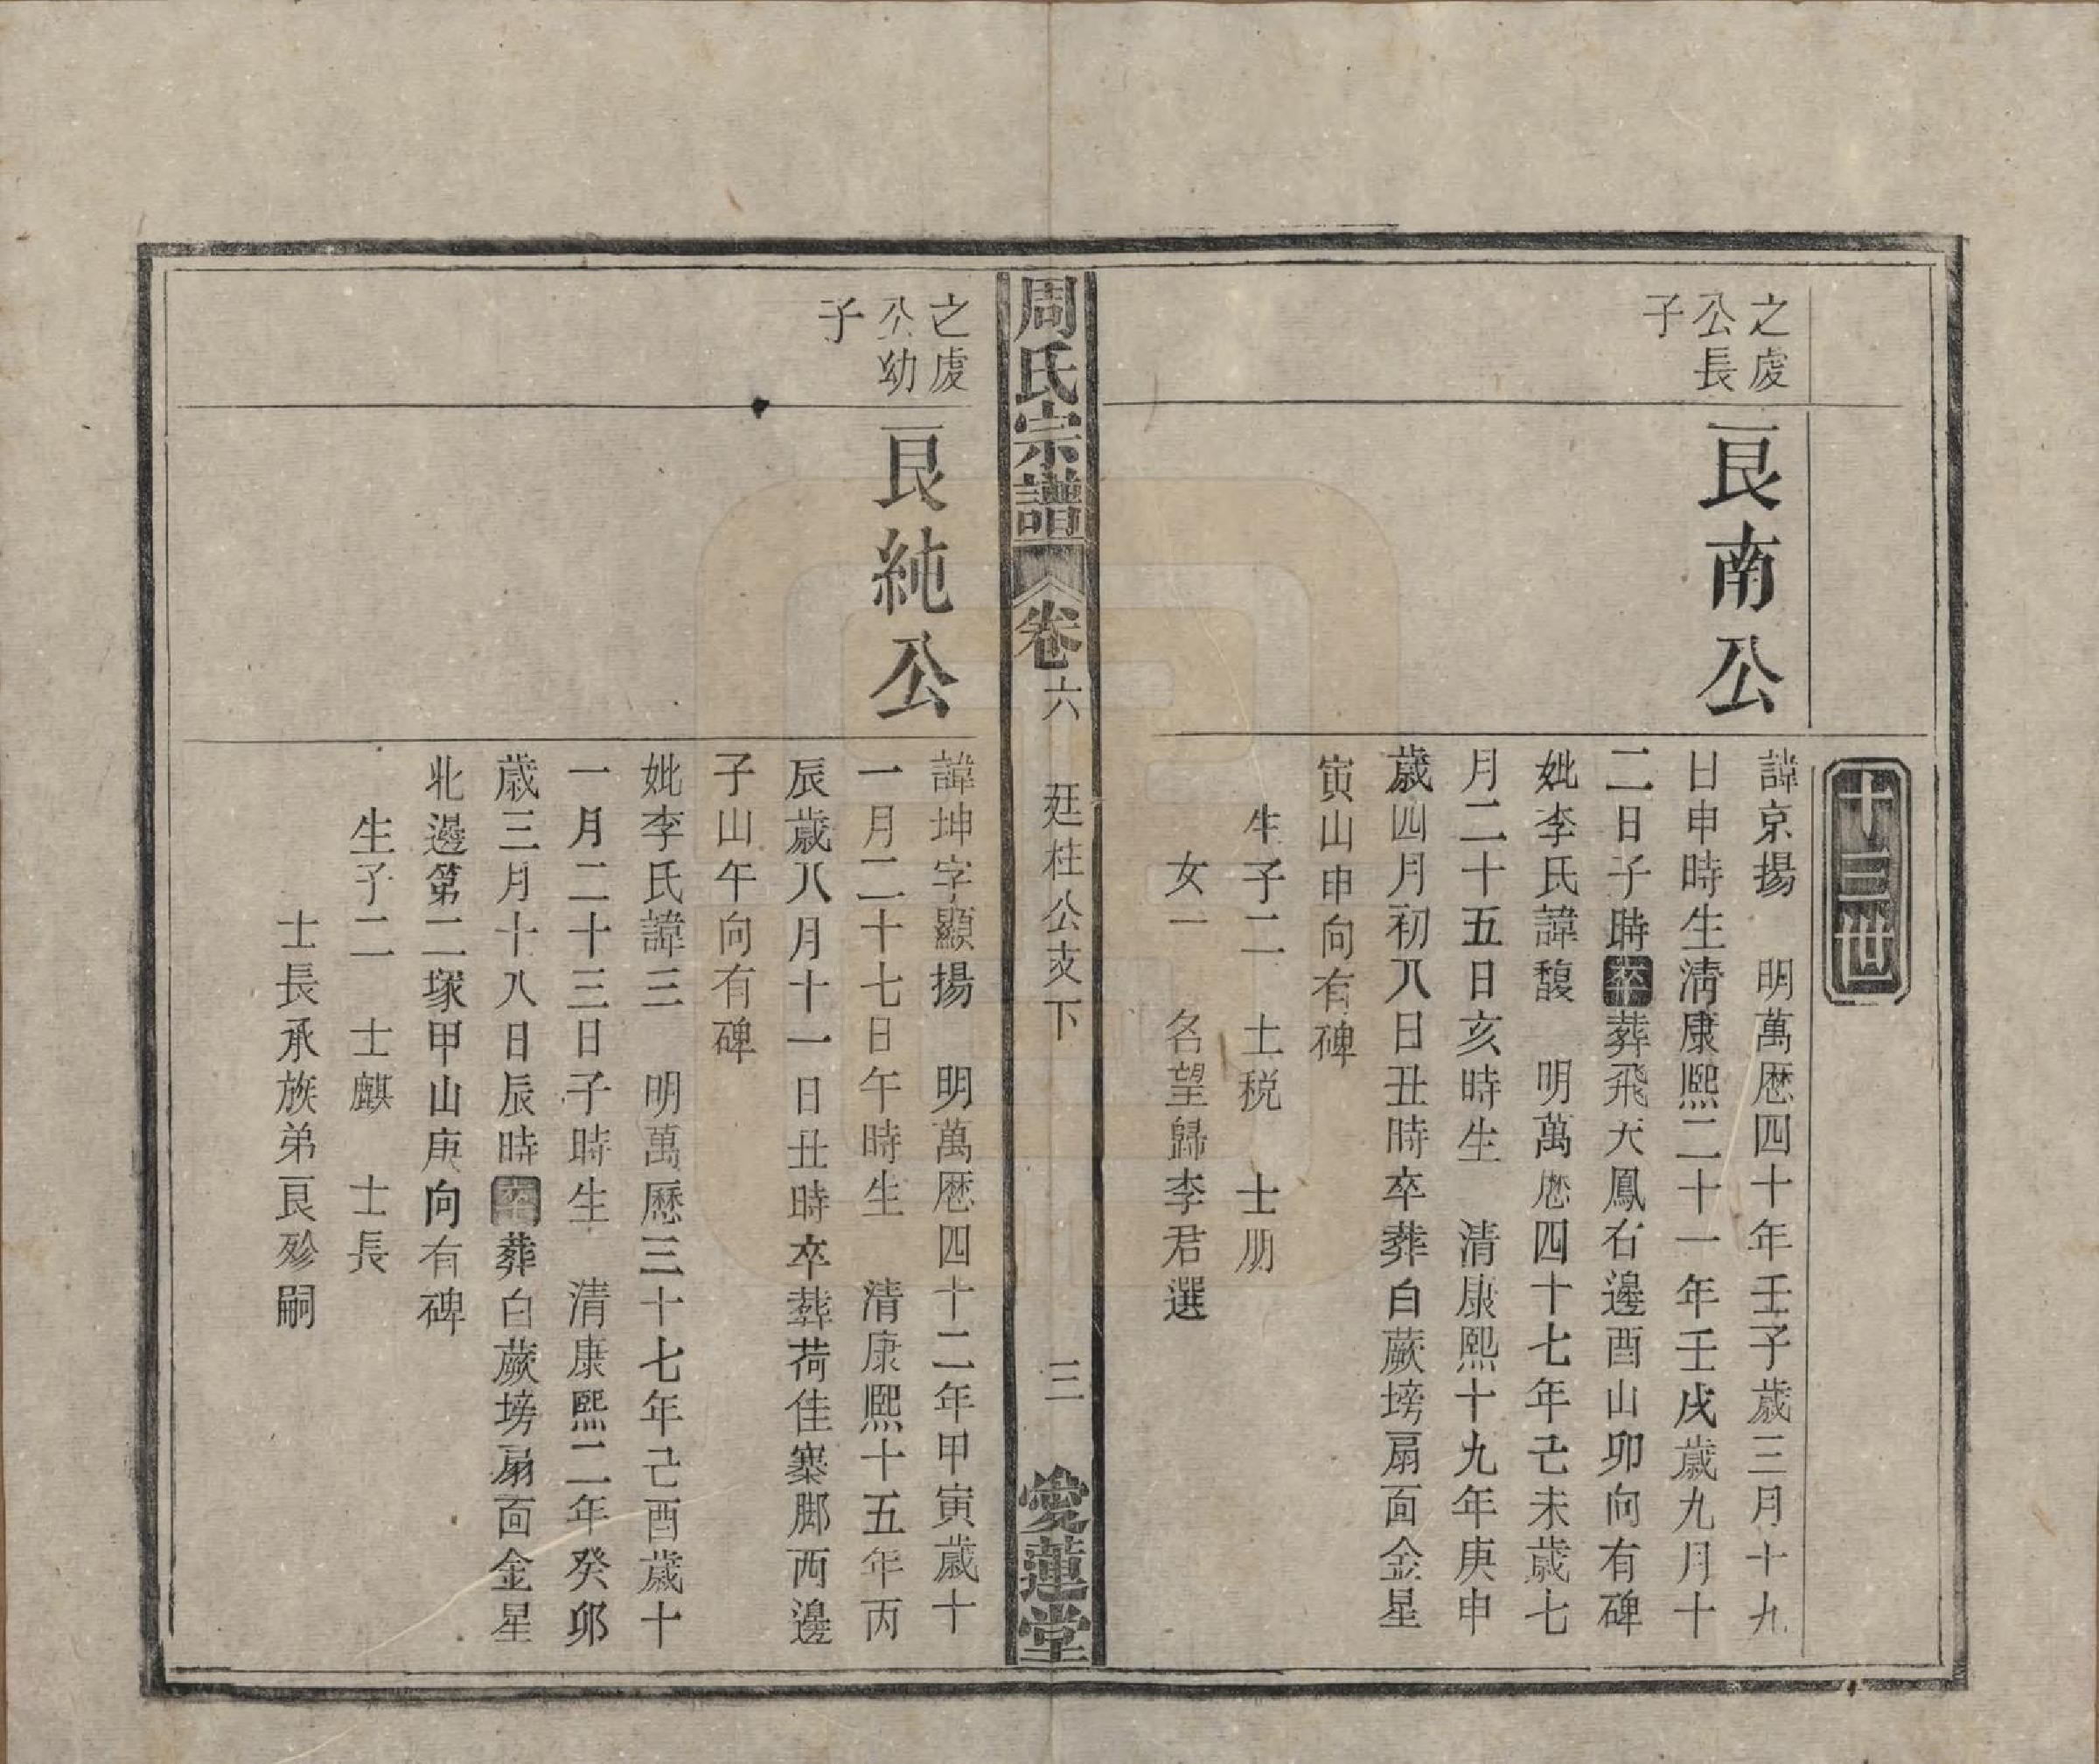 十三世
之虔
公長
子
良南公
諱京揚　明萬歷四十年壬子歲三月十九
日申時生清康熙二十一年壬戌歲九月十
二日子時卒葬飛天鳳右邊酉山卯向有碑
妣李氏諱馥　明萬歷四十七年己未歲七
月二十五日亥時生　清康熙十九年庚申
歲四月初八日丑時卒葬白蕨塝扇面金星
寅山申向有碑
生子二　士税　士朋
女一　名望歸李君選
周氏宗譜
卷六　廷柱公支下　三　愛蓮堂
之虔
公幼
子
良純公
諱坤字顯揚　明萬歷四十二年甲寅歲十
一月二十七日午時生　清康熙十五年丙
辰歲八月十一日丑時卒葬荷佳寨脚西邊
子山午向有碑
妣李氏諱三　明萬歷三十七年己酉歲十
一月二十三日子時生　清康熙二年癸卯
歲三月十八日辰時卒葬白蕨塝扇面金星
北邊第二塚甲山庚向有碑
生子二　士麒　士長
士長承族弟良殄嗣